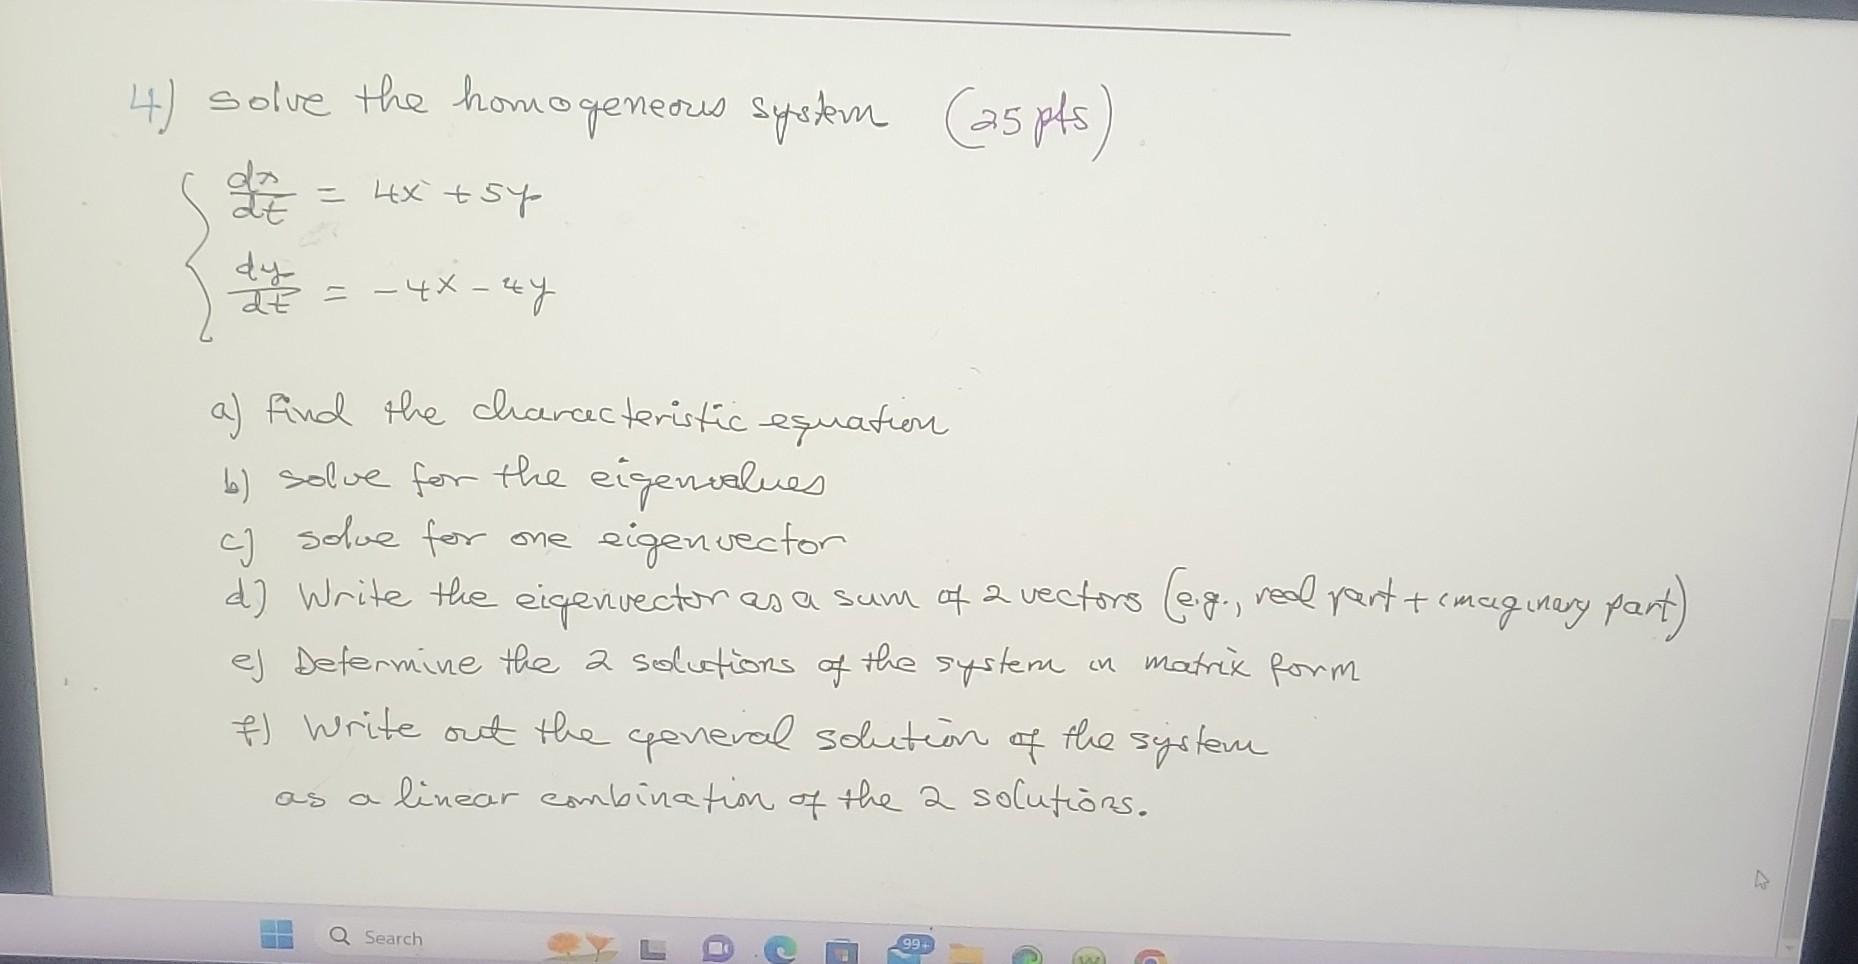 4) solve the homogeneous system (25 pts)
dx/dt = 4x + 5y
dy/dt = -4x - 4y
a) find the characteristic equation
b) solve for the eigenvalues
c) solve for one eigenvector
d) Write the eigenvector as a sum of 2 vectors (e.g., real part + imaginary part)
e) Determine the 2 solutions of the system in matrix form
f) Write out the general solution of the system
as a linear combination of the 2 solutions.
Search
99+